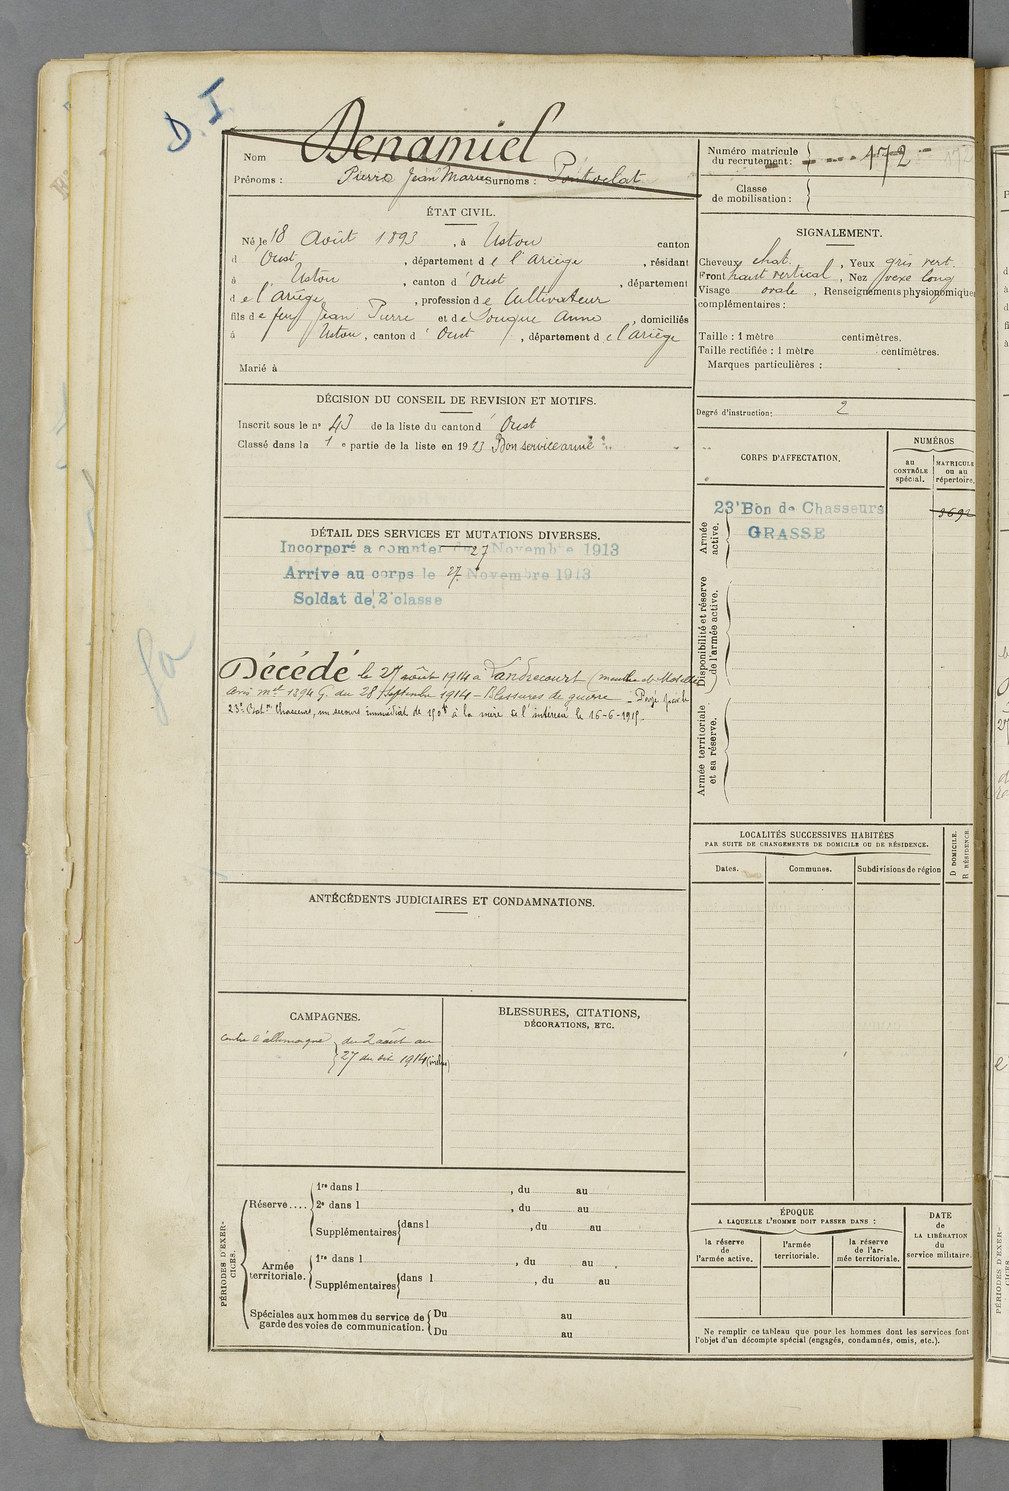 D. I.
Nom Denamiel
Prénoms : Pierre Jean Marie Surnoms :
Numéro matricule
du recrutement : 172
Classe
de mobilisation :
ÉTAT CIVIL.
Né le 18 Août 1893, à Ustou canton
d Oust, département de l'Ariège, résidant
à Ustou, canton d'Oust, département
de l'Ariège, profession de Cultivateur
fils de feu Jean Pierre et de Souque Anne, domiciliés
à Ustou, canton d'Oust, département de l'Ariège
Marié à
SIGNALEMENT.
Cheveux chat. , Yeux gris vert.
Front haut vertical, Nez long
Visage ovale, Renseignements physionomiques
complémentaires :
Taille : 1 mètre centimètres.
Taille rectifiée : 1 mètre centimètres.
Marques particulières :
Degré d'instruction: 2
DÉCISION DU CONSEIL DE REVISION ET MOTIFS.
Inscrit sous le n° 43 de la liste du canton d'Oust
Classé dans la 1e partie de la liste en 1913 Bon service armé
DÉTAIL DES SERVICES ET MUTATIONS DIVERSES.
Incorporé a compter du 27 Novembre 1913
Arrive au corps le 27 Novembre 1913
Soldat de 2e classe
Décédé le 27 août 1914 à Landrecourt
Avis mel 1394 G. du 28 Septembre 1914 - Blessures de guerre - Payé par le
23e Baton Chasseurs, un secours immédiat de 150f à la mère de l'intéressé le 16-6-1915.
CORPS D'AFFECTATION.
NUMÉROS
au
CONTRÔLE
spécial.
MATRICULE
ou au
répertoire.
Armée
active.
23e Bon de Chasseurs
GRASSE
3692
Disponibilité et réserve
de l'armée active.
Armée territoriale
et sa réserve.
LOCALITÉS SUCCESSIVES HABITÉES
PAR SUITE DE CHANGEMENTS DE DOMICILE OU DE RÉSIDENCE.
Dates.
Communes.
Subdivisions de région
D DOMICILE.
R RÉSIDENCE
ANTÉCÉDENTS JUDICIAIRES ET CONDAMNATIONS.
CAMPAGNES.
contre l'allemagne du 2 août au
27 du dit 1914 (inclus)
BLESSURES, CITATIONS,
DÉCORATIONS, ETC.
PÉRIODES D'EXER-
CICES.
Réserve.... 1re dans l , du au
2e dans l , du au
Supplémentaires dans l , du au
Armée
territoriale. 1re dans l , du au
Supplémentaires dans l , du au
Spéciales aux hommes du service de
garde des voies de communication. Du au
Du au
ÉPOQUE
A LAQUELLE L'HOMME DOIT PASSER DANS :
la réserve
de
l'armée active.
l'armée
territoriale.
la réserve
de l'ar-
mée territoriale.
DATE
de
LA LIBÉRATION
du
service militaire.
Ne remplir ce tableau que pour les hommes dont les services font
l'objet d'un décompte spécial (engagés, condamnés, omis, etc.).